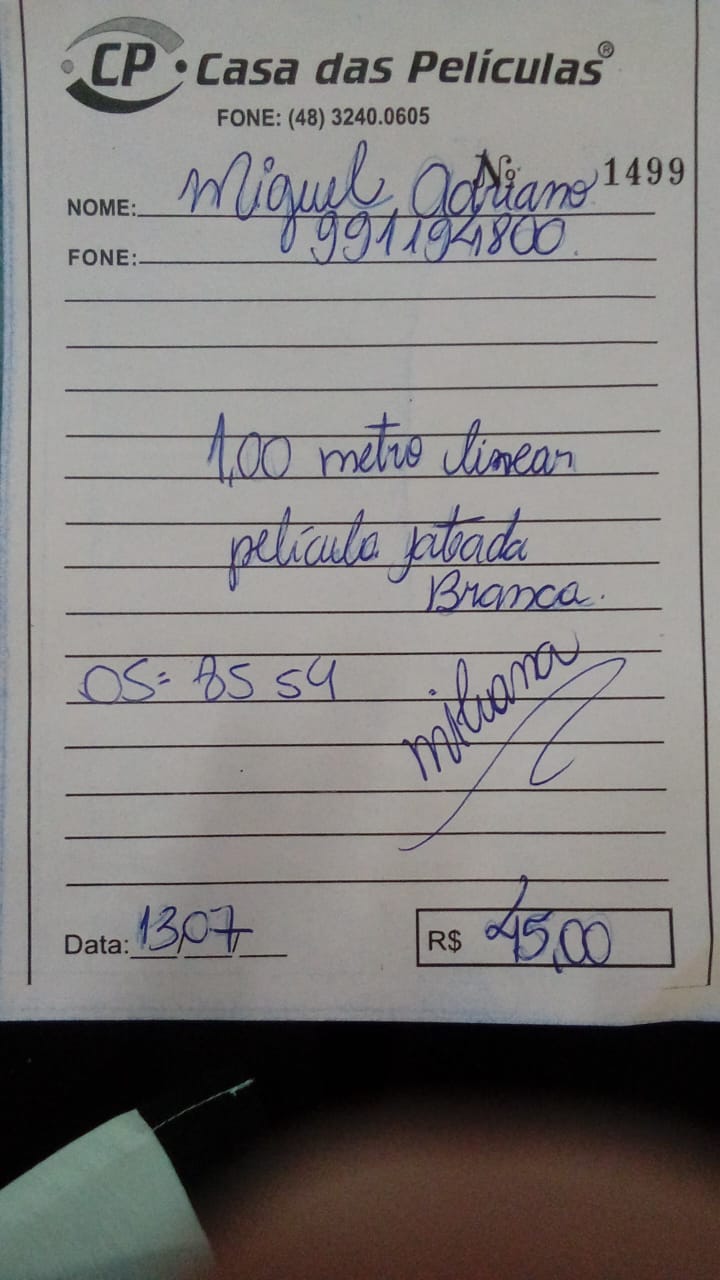 CP • Casa das Películas®
FONE: (48) 3240.0605
Nº 1499
NOME: Miguel Adriano
FONE: 991194800.
1,00 metro linear
película jateada
Branca.
OS= 8554
Data: 13,07,
R$ 45,00